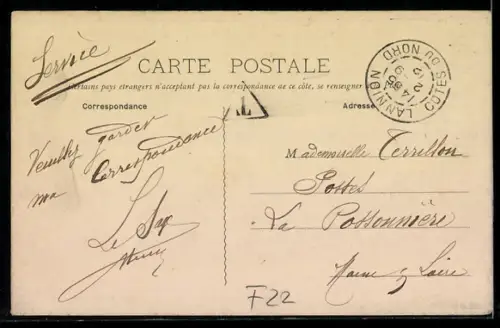 Service
CARTE POSTALE
Certains pays étrangers n'acceptant pas la correspondance de ce côté, se renseigner
Correspondance
Adresse
LANNION
COTES DU NORD
T
Veuillez garder
ma Correspondance
Le Sap
Mademoiselle Terrillon
Postes
La Possonnière
Maine & Loire
F22